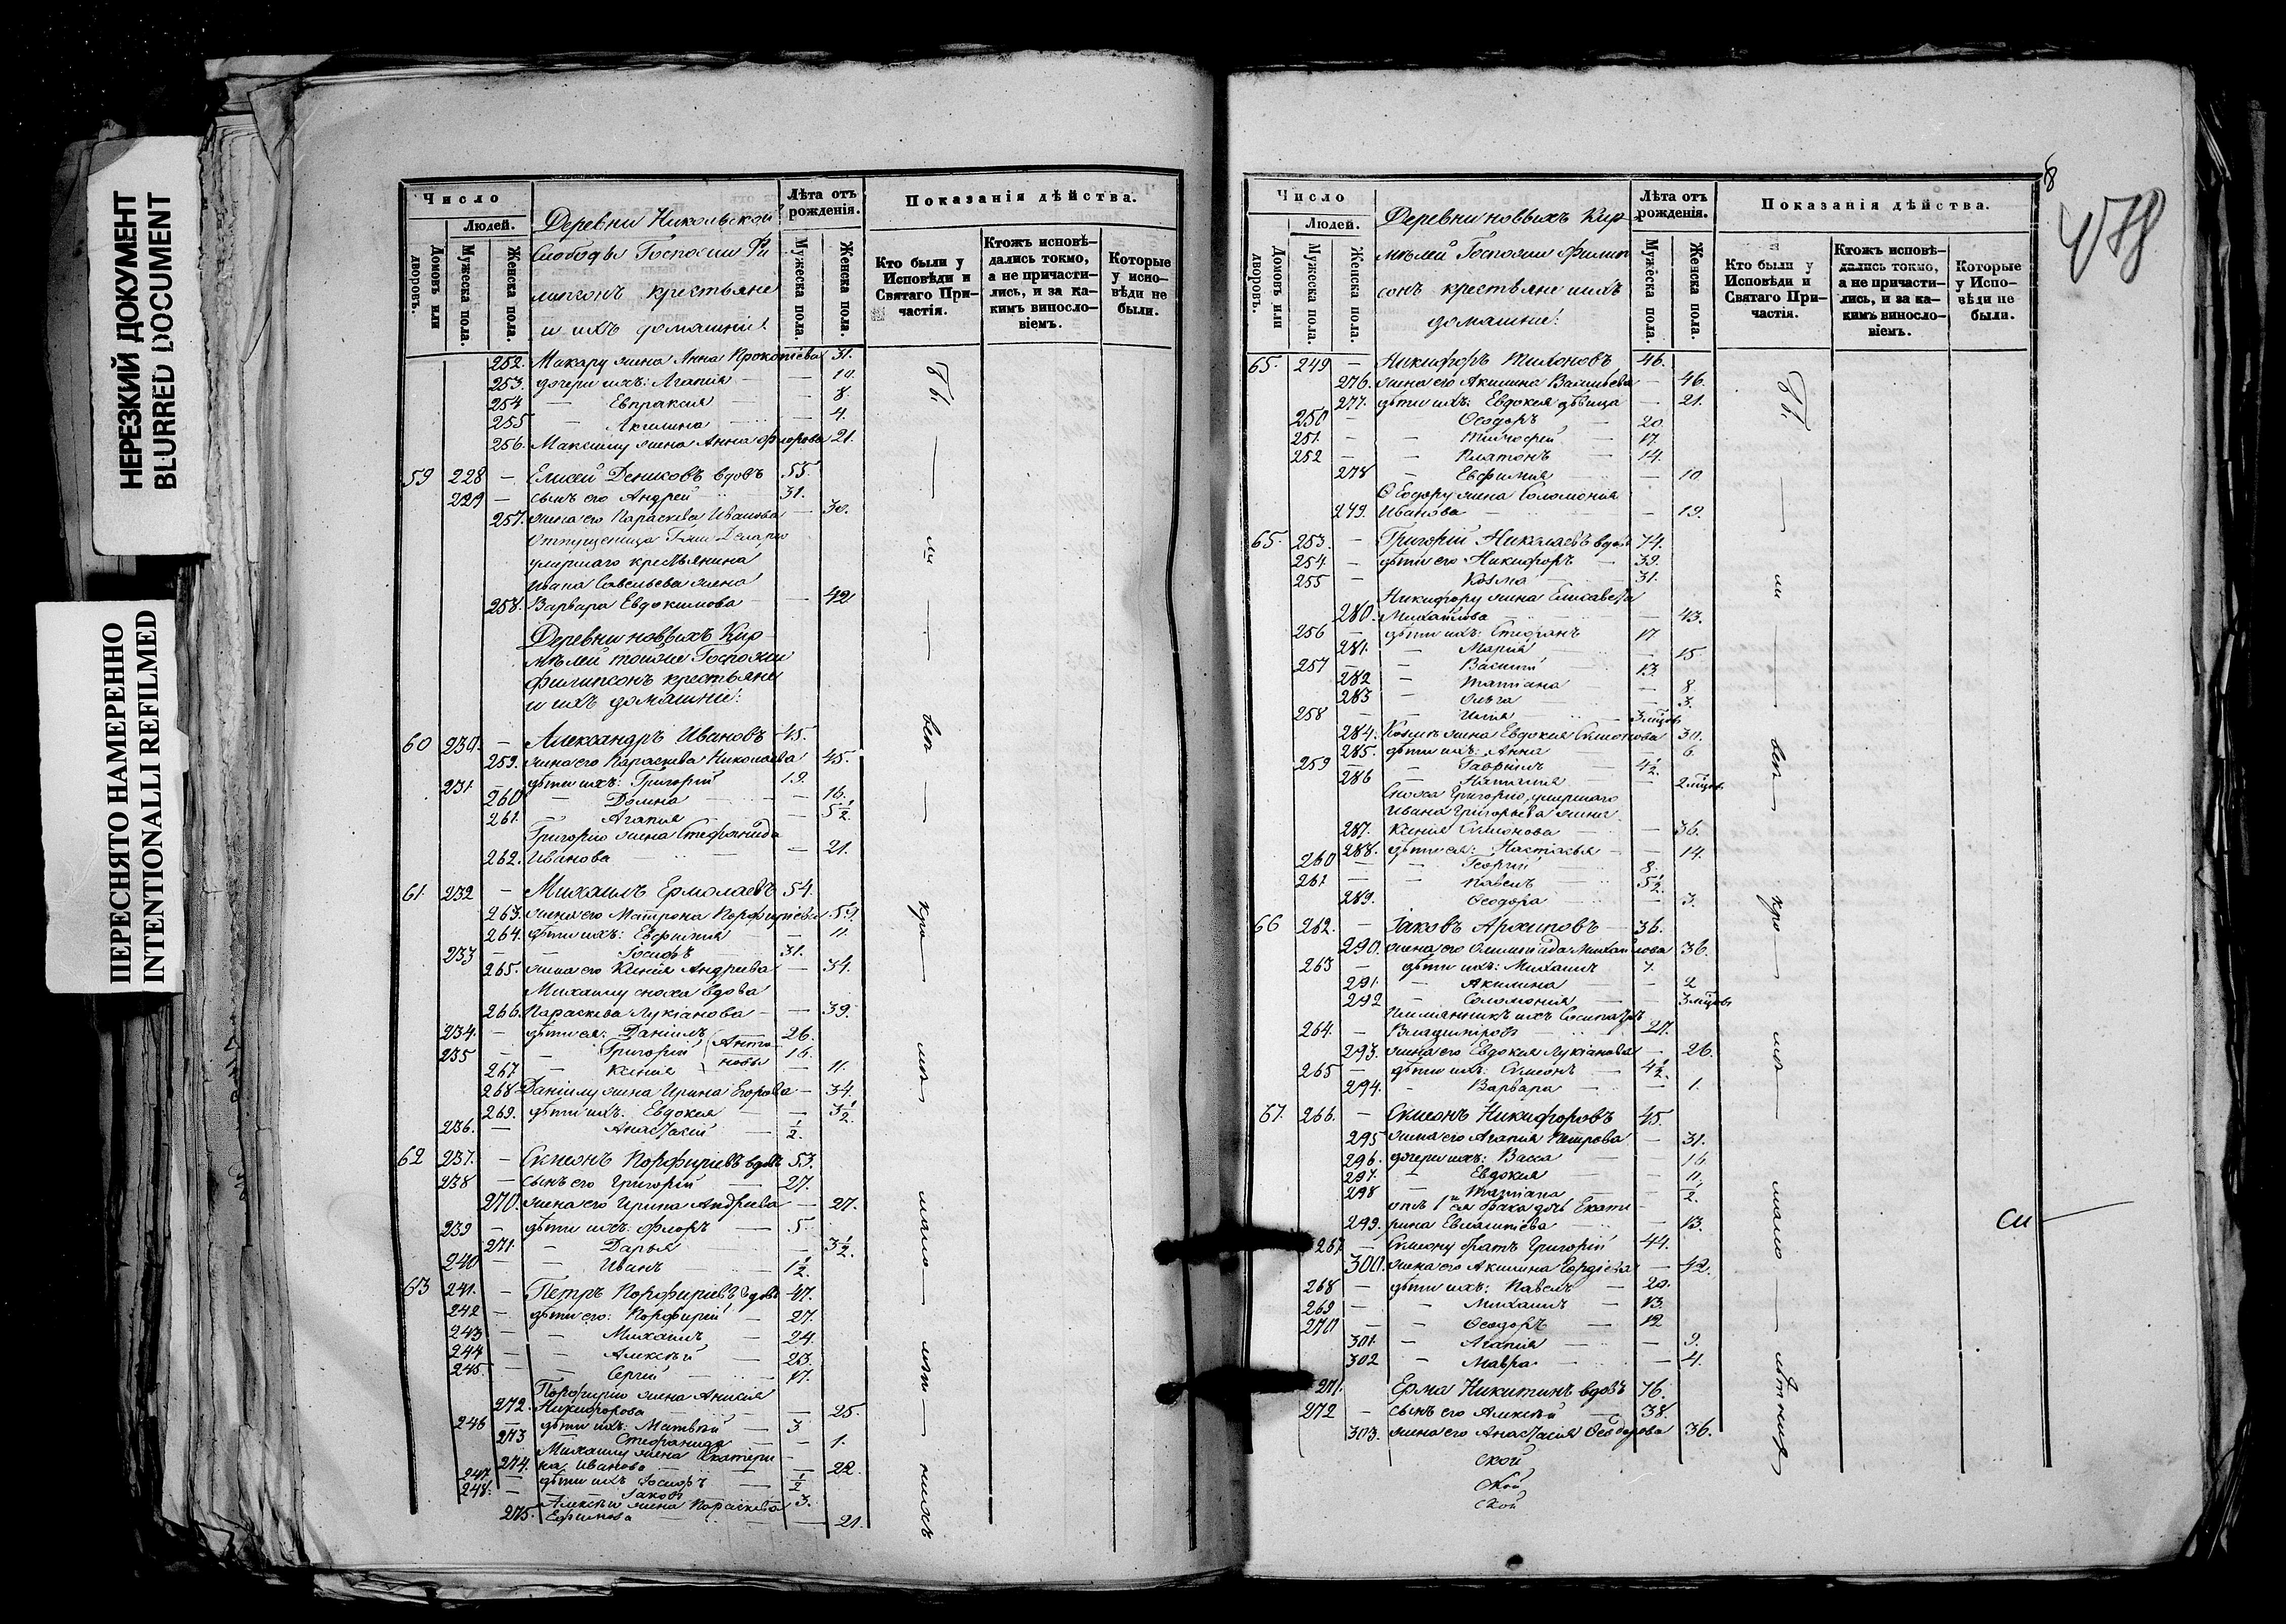 НЕРЕЗКИЙ ДОКУМЕНТ
BLURRED DOCUMENT
ПЕРЕСНЯТО НАМЕРЕННО
INTENTIONALLI REFILMED
Число
Людей.
Домовъ или дворовъ.
Мужеска пола.
Женска пола.
Деревни Никольской
Слободы Госпожи Фи
липсонъ крестьяне
и ихъ домашніе:
Лѣта отъ рожденія.
Мужеска пола.
Женска пола.
Показанія дѣйства.
Кто были у Исповѣди и Святаго Причастія.
Ктожъ исповѣдались токмо, а не причастились, и за какимъ винословіемъ.
Которые у исповѣди не были.
252. Макару жена Анна Прокопіева 31.
253. дочери ихъ: Агапія — — 10.
254 — Евпраксія — — 8.
255 — Акилина — — 4.
256. Максиму жена Анна Флорова 21.
59 228 — Елисей Денисовъ вдовъ 55.
229 — сынъ его Андрей 31.
257. жена его Параскева Иванова — 30.
умершаго крестьянина
Ивана Савельева жена
258. Варвара Евдокимова — — 42.
Деревни новыхъ Кир-
мѣлей тойже Госпожи
Филипсонъ крестьяне
и ихъ домашніе:
60 230. — Александръ Ивановъ 45.
259. жена его Параскева Николаева 45.
231. — дѣти ихъ: Григорій 19.
260 — Домна — — 16.
261. — Агапія — — 5½.
Григорію жена Стефанида
262. Иванова — — 21.
61. 232 — Михаилъ Ермолаевъ 54.
263. жена его Матрона Порфиріева 59.
264. дѣти ихъ: Евфимія — — 11.
233 — — Іосифъ — 31.
265. жена его Ксенія Андреева — 34.
Михаилу сноха вдова
266. Параскева Лукіанова — — 39.
234. — дѣти ея: Даніилъ 26.
235 — — Григорій Анто- 16.
267 — Ксенія новы — 11.
268. Даніилу жена Ирина Егорова — 34.
269. дѣти ихъ: Евдокія — — 3½
236. — Анастасій — ½.
62 237. — Симеонъ Порфиріевъ вдовъ 53.
238 — сынъ его Григорій — 27.
270. жена его Ирина Андреева — 27.
239 — дѣти ихъ: Флоръ — 5
271. — Дарья — 3½.
240 — — Иванъ — 1½.
63 241. — Петръ Порфиріевъ вдовъ 47.
242 — дѣти его: Порфирій — 27.
243 — — Михаилъ — 24.
244 — — Алексѣй — 23.
245. — — Сергій — 17.
Порфирію жена Анисія
272. Никифорова — 25.
246 — дѣти ихъ: Матвѣй — 3
273 Стефанида — — 1.
Михаилу жена Екатери-
274. на Иванова — — 22.
247. — дѣти ихъ Іосифъ — ½
248. — Іаковъ 3.
Алексѣю жена Параскева
275. Ефимова — — 21.
Число
Людей.
Домовъ или дворовъ.
Мужеска пола.
Женска пола.
Деревни новыхъ Кир-
мѣлей Госпожи Филип
сонъ крестьяне и ихъ
домашніе:
Лѣта отъ рожденія.
Мужеска пола.
Женска пола.
Показанія дѣйства.
Кто были у Исповѣди и Святаго Причастія.
Ктожъ исповѣдались токмо, а не причастились, и за какимъ винословіемъ.
Которые у Исповѣди не были.
65. 249 — Никифоръ Тихоновъ 46.
276. жена его Акилина Васильева — 46.
277. дѣти ихъ: Евдокія дѣвица — 21.
250 — Ѳеодоръ — 20.
251. — — Тимофей — 17.
252 — — Платонъ — 14.
278 — Евфимія — 10
Ѳеодору жена Соломонія
279. Иванова — 19.
65. 253. — Григорій Николаевъ вдовъ 74.
254 — дѣти его Никифоръ — 39.
255 — Козма — 31.
Никифору жена Елисавета
280. Михайлова — 43.
256 — дѣти ихъ: Стефанъ 17
281. — Марія — 15
257 — — Василій 13.
282 — Татіана — 8
283 — Ольга — 3.
258 — — Илія — 3 мѣсяц.
284. Козмѣ жена Евдокія Симеонова 30.
285. дѣти ихъ: Анна — 6.
259 — Гавріилъ — 4½.
286 — Наталія — 2 мѣсяц.
Сноха Григорію, умершаго
Ивана Григорьева жена
287. Ксенія Симеонова — — 36.
288. дѣти ея: Настасья — — 14.
260 — — Георгій — 8.
261 — — Павелъ 5½.
289. Ѳеодора — 3.
66 262. — Іаковъ Архиповъ — 36.
290. жена его Олимпіада Михайлова 36.
263 — дѣти ихъ: Михаилъ 7.
291. — Акилина — 2
292 — Соломонія — 3 мѣсяц.
племянникъ ихъ Сосипатръ
264. — Владиміровъ — 27.
293. жена его Евдокія Лукіанова — 26.
265 — дѣти ихъ: Симеонъ — 4½.
294. — Варвара — 1.
67. 266. — Симеонъ Никифоровъ 45.
295 жена его Агапія Петрова — 31.
296. дочери ихъ: Васса — 16.
297. — Евдокія — 11.
298 — Татіана — ½.
отъ 1го ея брака дочь Екате-
299. рина Евлампіева — — 13.
267 — Симеону братъ Григорій 44.
300. жена его Акилина Гордіева — 42.
268 — дѣти ихъ: Павелъ — 20.
269 — — Михаилъ — 13.
270 — — Ѳеодоръ — 12
301. — Агапія — — 9.
302 — Мавра — — 4.
271. Ерма Никитинъ вдовъ 76.
272 — сынъ его Алексѣй — 38.
303. жена его Анастасія Ѳеодорова 36.
ской
ской
ской